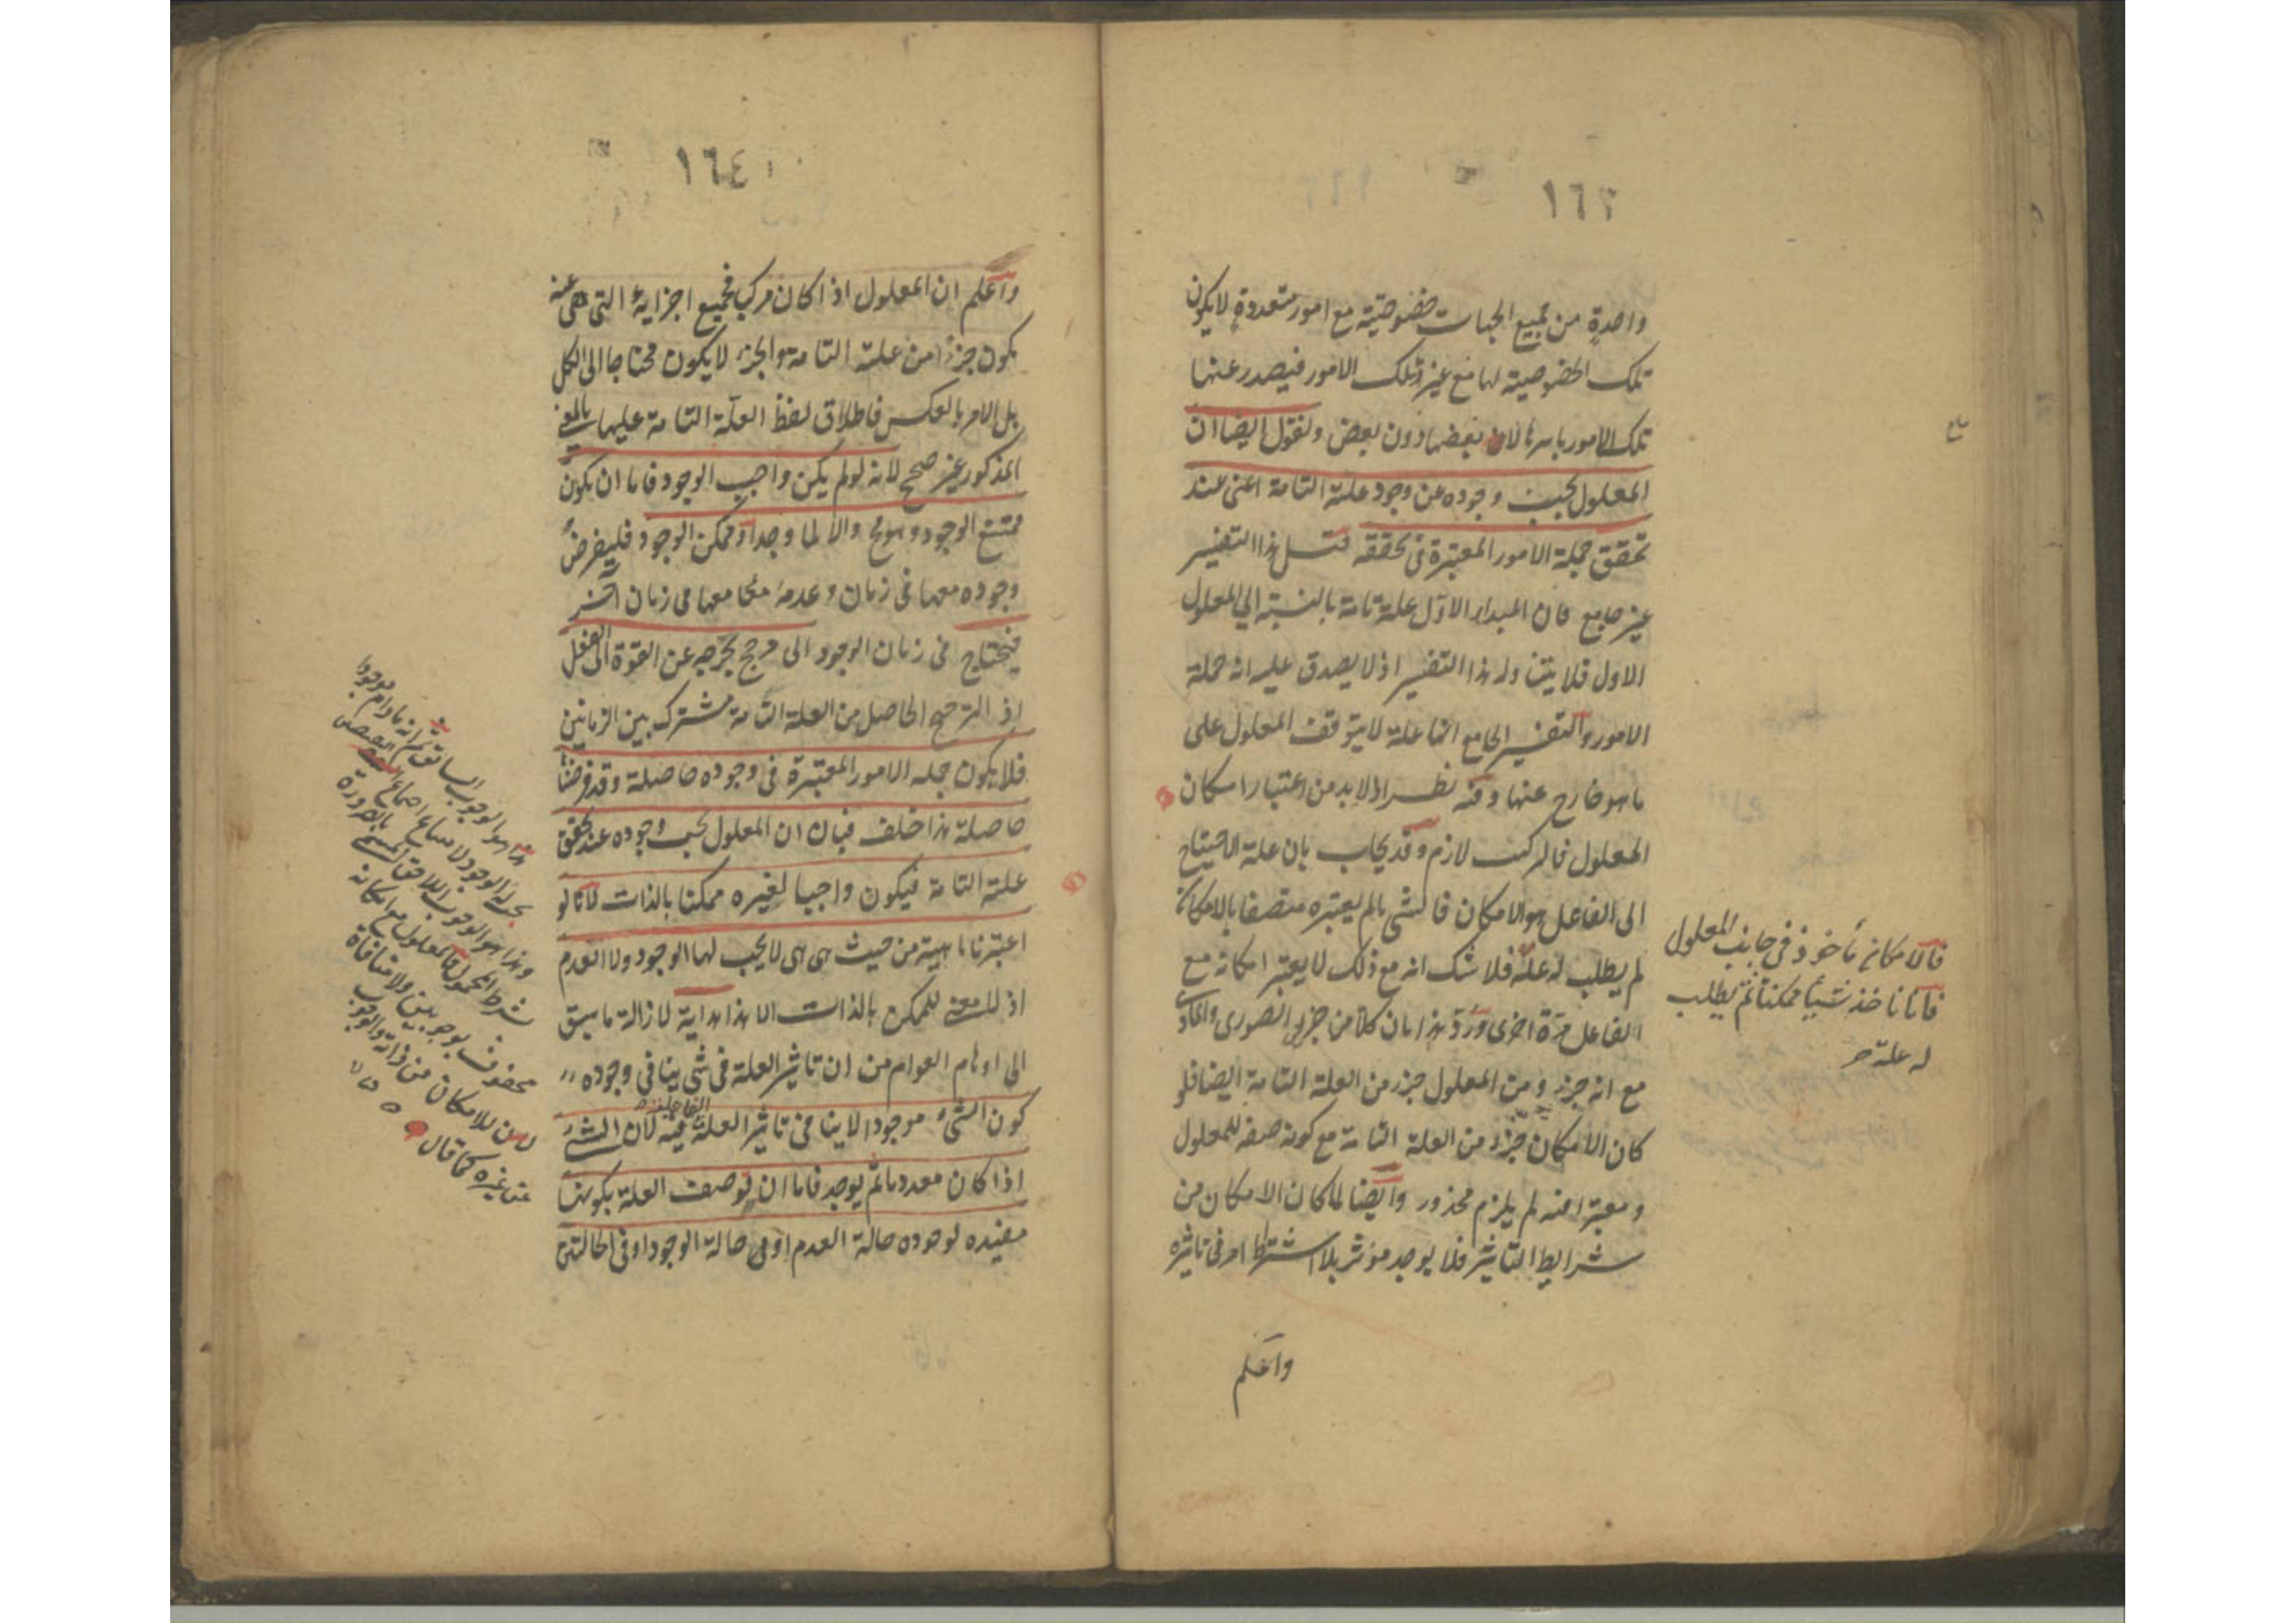 ١٦٣
واحدة من جميع الجهات خصوصية مع امور متعددة لا يكون
تلك الخصوصية لها مع غير تلك الامور فيصدر عنها
تلك الامور باسرها لا بعضها دون بعض ونقول ايضا ان
المعلول يجب وجوده عن وجود علته التامة اعنى عند
تحقق جملة الامور المعتبرة فى تحققه قيل هذا التفسير
غير جامع فان المبداء الاول علة تامة بالنسبة الى المعلول
الاول فلا يتناوله هذا التفسير اذ لا يصدق عليه انه جملة
الامور والتفسير الجامع انها علة لا يتوقف المعلول على
ما هو خارج عنها وفيه نظر اذ لا بد من اعتبار امكان
المعلول فالتركيب لازم وقد يجاب بان علة الاحتياج
الى الفاعل هو الامكان فالشى ما لم يعتبره متصفا بالامكان
لم يطلب له علة فلا شك انه مع ذلك لا يعتبر امكانه مع
الفاعل مرة اخرى ورد هذا بان كلا من جزئى الصورى والمادى
مع انه جزء من المعلول جزء من العلة التامة ايضا فلو
كان الامكان جزء من العلة التامة مع كونه صفة للمعلول
ومعتبرا فيه لم يلزم محذور وايضا لما كان الامكان من
شرايط التاثير فلا يوجد مؤثر بلا اشتراط امر فى تاثيره
واعلم
فالامكان مأخوذ فى جانب المعلول
فانا ناخذ شيأ ممكنا ثم يطلب
له علة
١٦٤
واعلم ان المعلول اذا كان مركبا فجميع اجزايه التى هى عينه
يكون جزءا من علته التامة والجزء لا يكون محتاجا الى الكل
بل الامر بالعكس فاطلاق لفظ العلة التامة عليها بالمعنى
المذكور غير صحيح لانه لو لم يكن واجب الوجود فاما ان يكون
ممتنع الوجود وهو مح والا لما وجد او ممكن الوجود فليفرض
وجوده معها فى زمان وعدمه معها فى زمان آخر
فيحتاج فى زمان الوجود الى مرجح يخرجه عن القوة الى الفعل
اذ الترجيح الحاصل من العلة التامة مشترك بين الزمانين
فلا يكون جملة الامور المعتبرة فى وجوده حاصلة وقد فرضنا
حاصلة هذا خلف فبان ان المعلول يجب وجوده عند تحقق
علته التامة فيكون واجبا لغيره ممكنا بالذات لانا لو
اعتبرنا ماهيته من حيث هى هى لا يجب لها الوجود ولا العدم
اذ لا معنى للممكن بالذات الا هذا هداية لازالة ما يسبق
الى اوهام العوام من ان تاثير العلة فى شى ينافى وجوده
كون الشىء موجودا لا ينافى تاثير العلة الفاعلية فيه لان الشىء
اذا كان معدوما ثم يوجد فاما ان يوصف العلة بكونها
مفيدة لوجوده حالة العدم او فى حالة الوجود او فى الحالتين
شرط المحمول فالمعلول مع امكانه
محفوف بوجوبين ولا منافاة
للامكان من ذاته والوجوب
من غيره كما قال